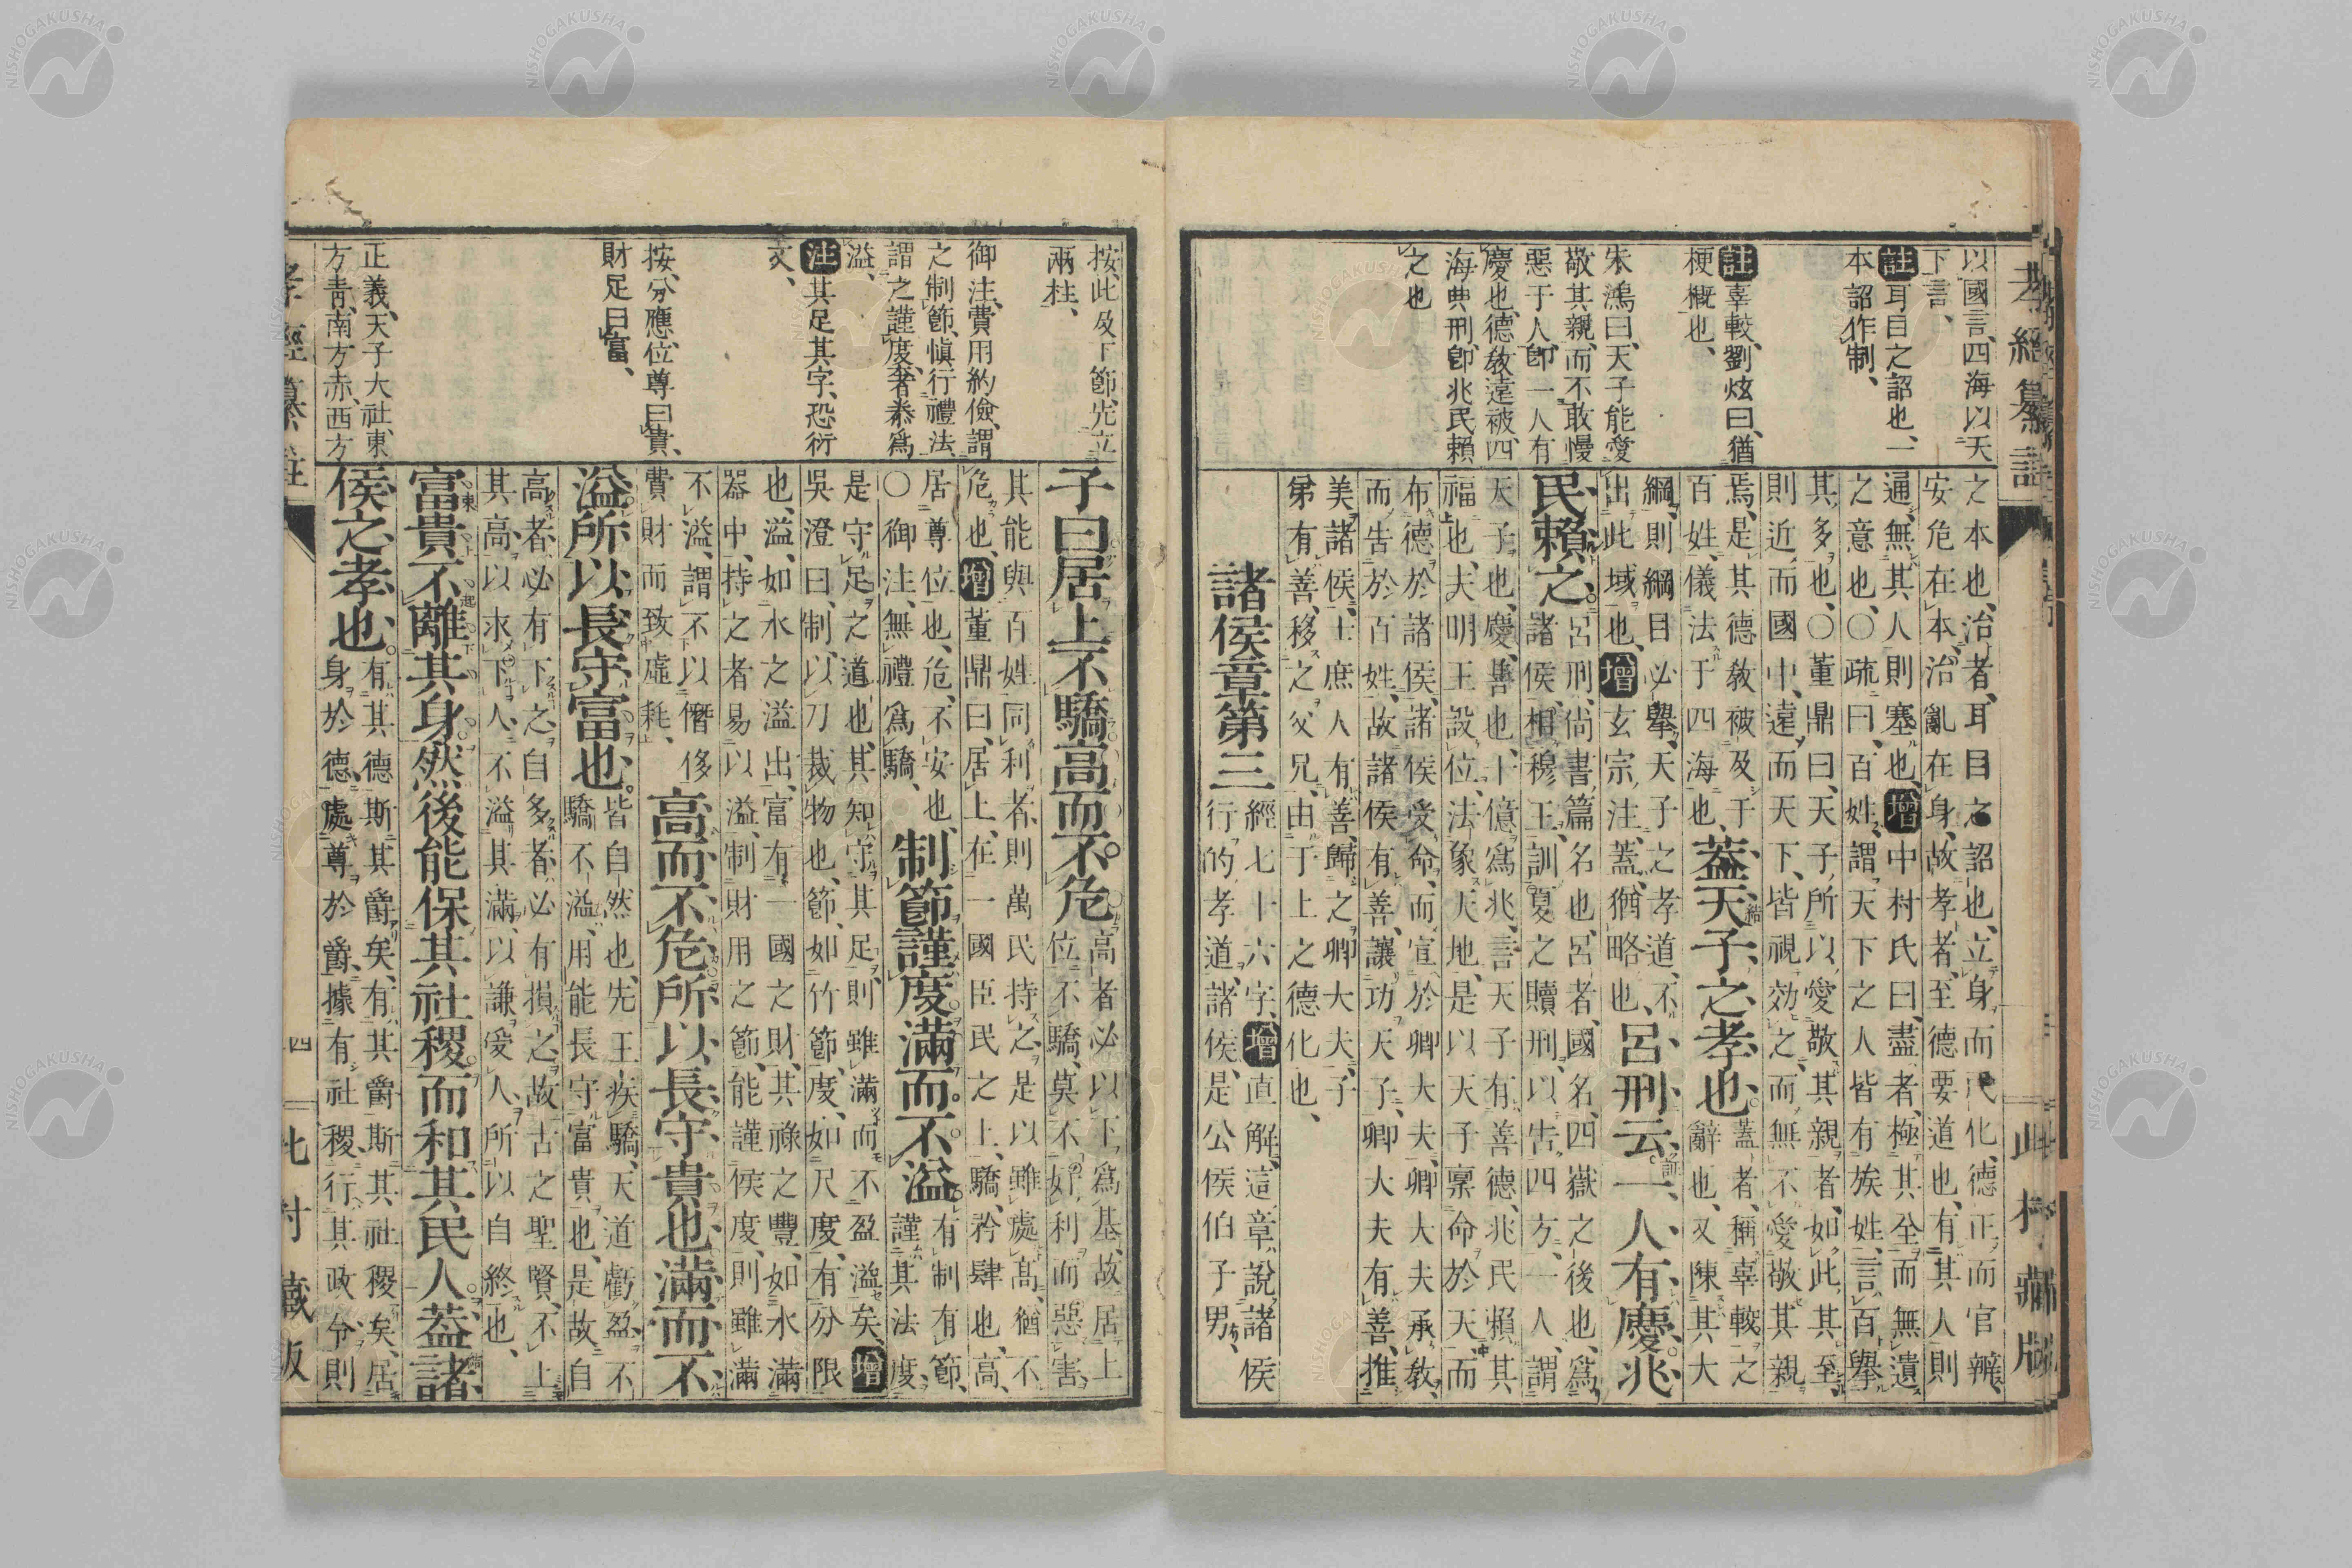 孝經纂註
此村藏版
以國言、四海以天
下言、
註耳目之詔也、一
本詔作制、
註辜較、劉炫曰、猶
梗概也、
朱鴻曰、天子能愛
敬其親、而不敢慢
惡于人、卽一人有
慶也、德教遠被四
海典刑、卽兆民賴
之也
之本也、治者、耳目之詔也、立身而民化、德正而官辨、
安危在本、治亂在身、故孝者、至德要道也、有其人則
通、無其人則塞也、增中村氏曰、盡者、極其全而無遺
之意也、〇疏曰、百姓、謂天下之人皆有族姓、言百擧
其多也、〇董鼎曰、天子所以愛敬其親者、如此、其至、
則近而國中、遠而天下、皆視効之、而無不愛敬其親
焉、是其德教被及于
百姓、儀法于四海也、
蓋天子之孝也、
蓋者、稱辜較之
辭也、又陳其大
綱、則綱目必擧、天子之孝道、不
出此域也、增玄宗注、蓋、猶略也、
呂刑云、一人有慶、兆
民賴之、
呂刑、尚書篇名也、呂者、國名、四嶽之後也、爲
諸侯、相穆王、訓夏之贖刑、以告四方、一人、謂
天子也、慶、善也、十億爲兆、言天子有善德、兆民賴其
福也、夫明王設位、法象天地、是以天子稟命於天、而
布德於諸侯、諸侯受命、而宣於卿大夫、卿大夫承教、
而告於百姓、故諸侯有善、讓功天子、卿大夫有善、推
美諸侯、士庶人有善、歸之卿大夫、子
弟有善、移之父兄、由于上之德化也、
諸侯章第三
經七十六字、增直解、這章說諸侯
行的孝道、諸侯、是公侯伯子男、
按、此及下節、先立
兩柱、
御注、費用約儉、謂
之制節、愼行禮法、
謂之謹度、奢泰爲
溢、
注其足其字、恐衍
文、
按、分應、位尊曰貴、
財足曰富、
正義、天子大社、東
方靑、南方赤、西方
子曰居上不驕高而不危
高者必以下爲基、故居上
位不驕、莫不好利而惡害、
其能與百姓同利者、則萬民持之、是以雖處高、猶不
危也、增董鼎曰、居上、在一國臣民之上、驕、矜肆也、高、
居尊位也、危、不安也、
〇御注、無禮爲驕、
制節謹度滿而不溢
有制有節、
謹其法度、
是守足之道也、其知守其足、則雖滿而不盈溢矣、增
吳澄曰、制、以刀裁物也、節、如竹節、度、如尺度、有分限
也、溢、如水之溢出、富有一國之財、其祿之豐、如水滿
器中、持之者易以溢、制財用之節、能謹侯度、則雖滿
不溢、謂不以僭侈
費財而致虛耗、
高而不危所以長守貴也、滿而不
溢所以長守富也、
皆自然也、先王疾驕、天道虧盈、不
驕不溢、用能長守富貴也、是故自
高者、必有下之、自多者、必有損之、故古之聖賢、不上
其高、以求下人、不溢其滿、以謙愛人、所以自終也、
富貴不離其身、然後能保其社稷、而和其民人、蓋諸
侯之孝也、
有其德斯其爵矣、有其爵斯其社稷矣、居
身於德、處尊於爵、據有社稷、行其政令、則
四
此村藏版